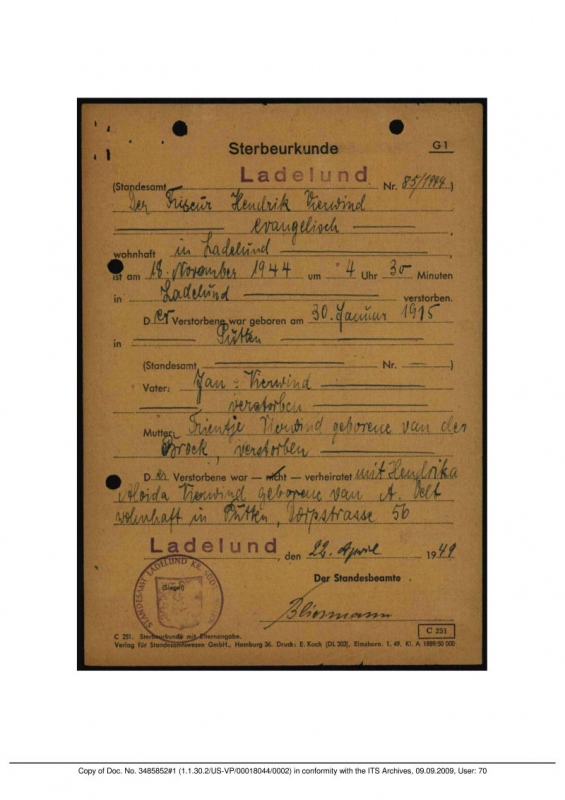 Sterbeurkunde
G 1
(Standesamt Ladelund Nr. 85/1944)
Der Friseur Hendrik Vierwind
evangelisch
wohnhaft in Ladelund
ist am 18. November 1944 um 4 Uhr 30 Minuten
in Ladelund verstorben.
Der Verstorbene war geboren am 30. Januar 1915
in Putten
(Standesamt Nr. )
Vater: Jan Vierwind
verstorben
Mutter: Trientje Vierwind geborene van den
Brock, verstorben
Der Verstorbene war — nicht — verheiratet mit Hendrika
Aloida Vierwind geborene van A. Velt
wohnhaft in Putten, Dorpstrasse 56
Ladelund, den 22. April 1949
Der Standesbeamte
(Siegel)
STANDESAMT LADELUND KR. SÜD
C 251
C 251. Sterbeurkunde mit Elternangabe.
Verlag für Standesamtswesen GmbH., Hamburg 36. Druck: E. Koch (DL 303), Elmshorn. 1. 49. Kl. A 1889/50 000
Copy of Doc. No. 3485852#1 (1.1.30.2/US-VP/00018044/0002) in conformity with the ITS Archives, 09.09.2009, User: 70